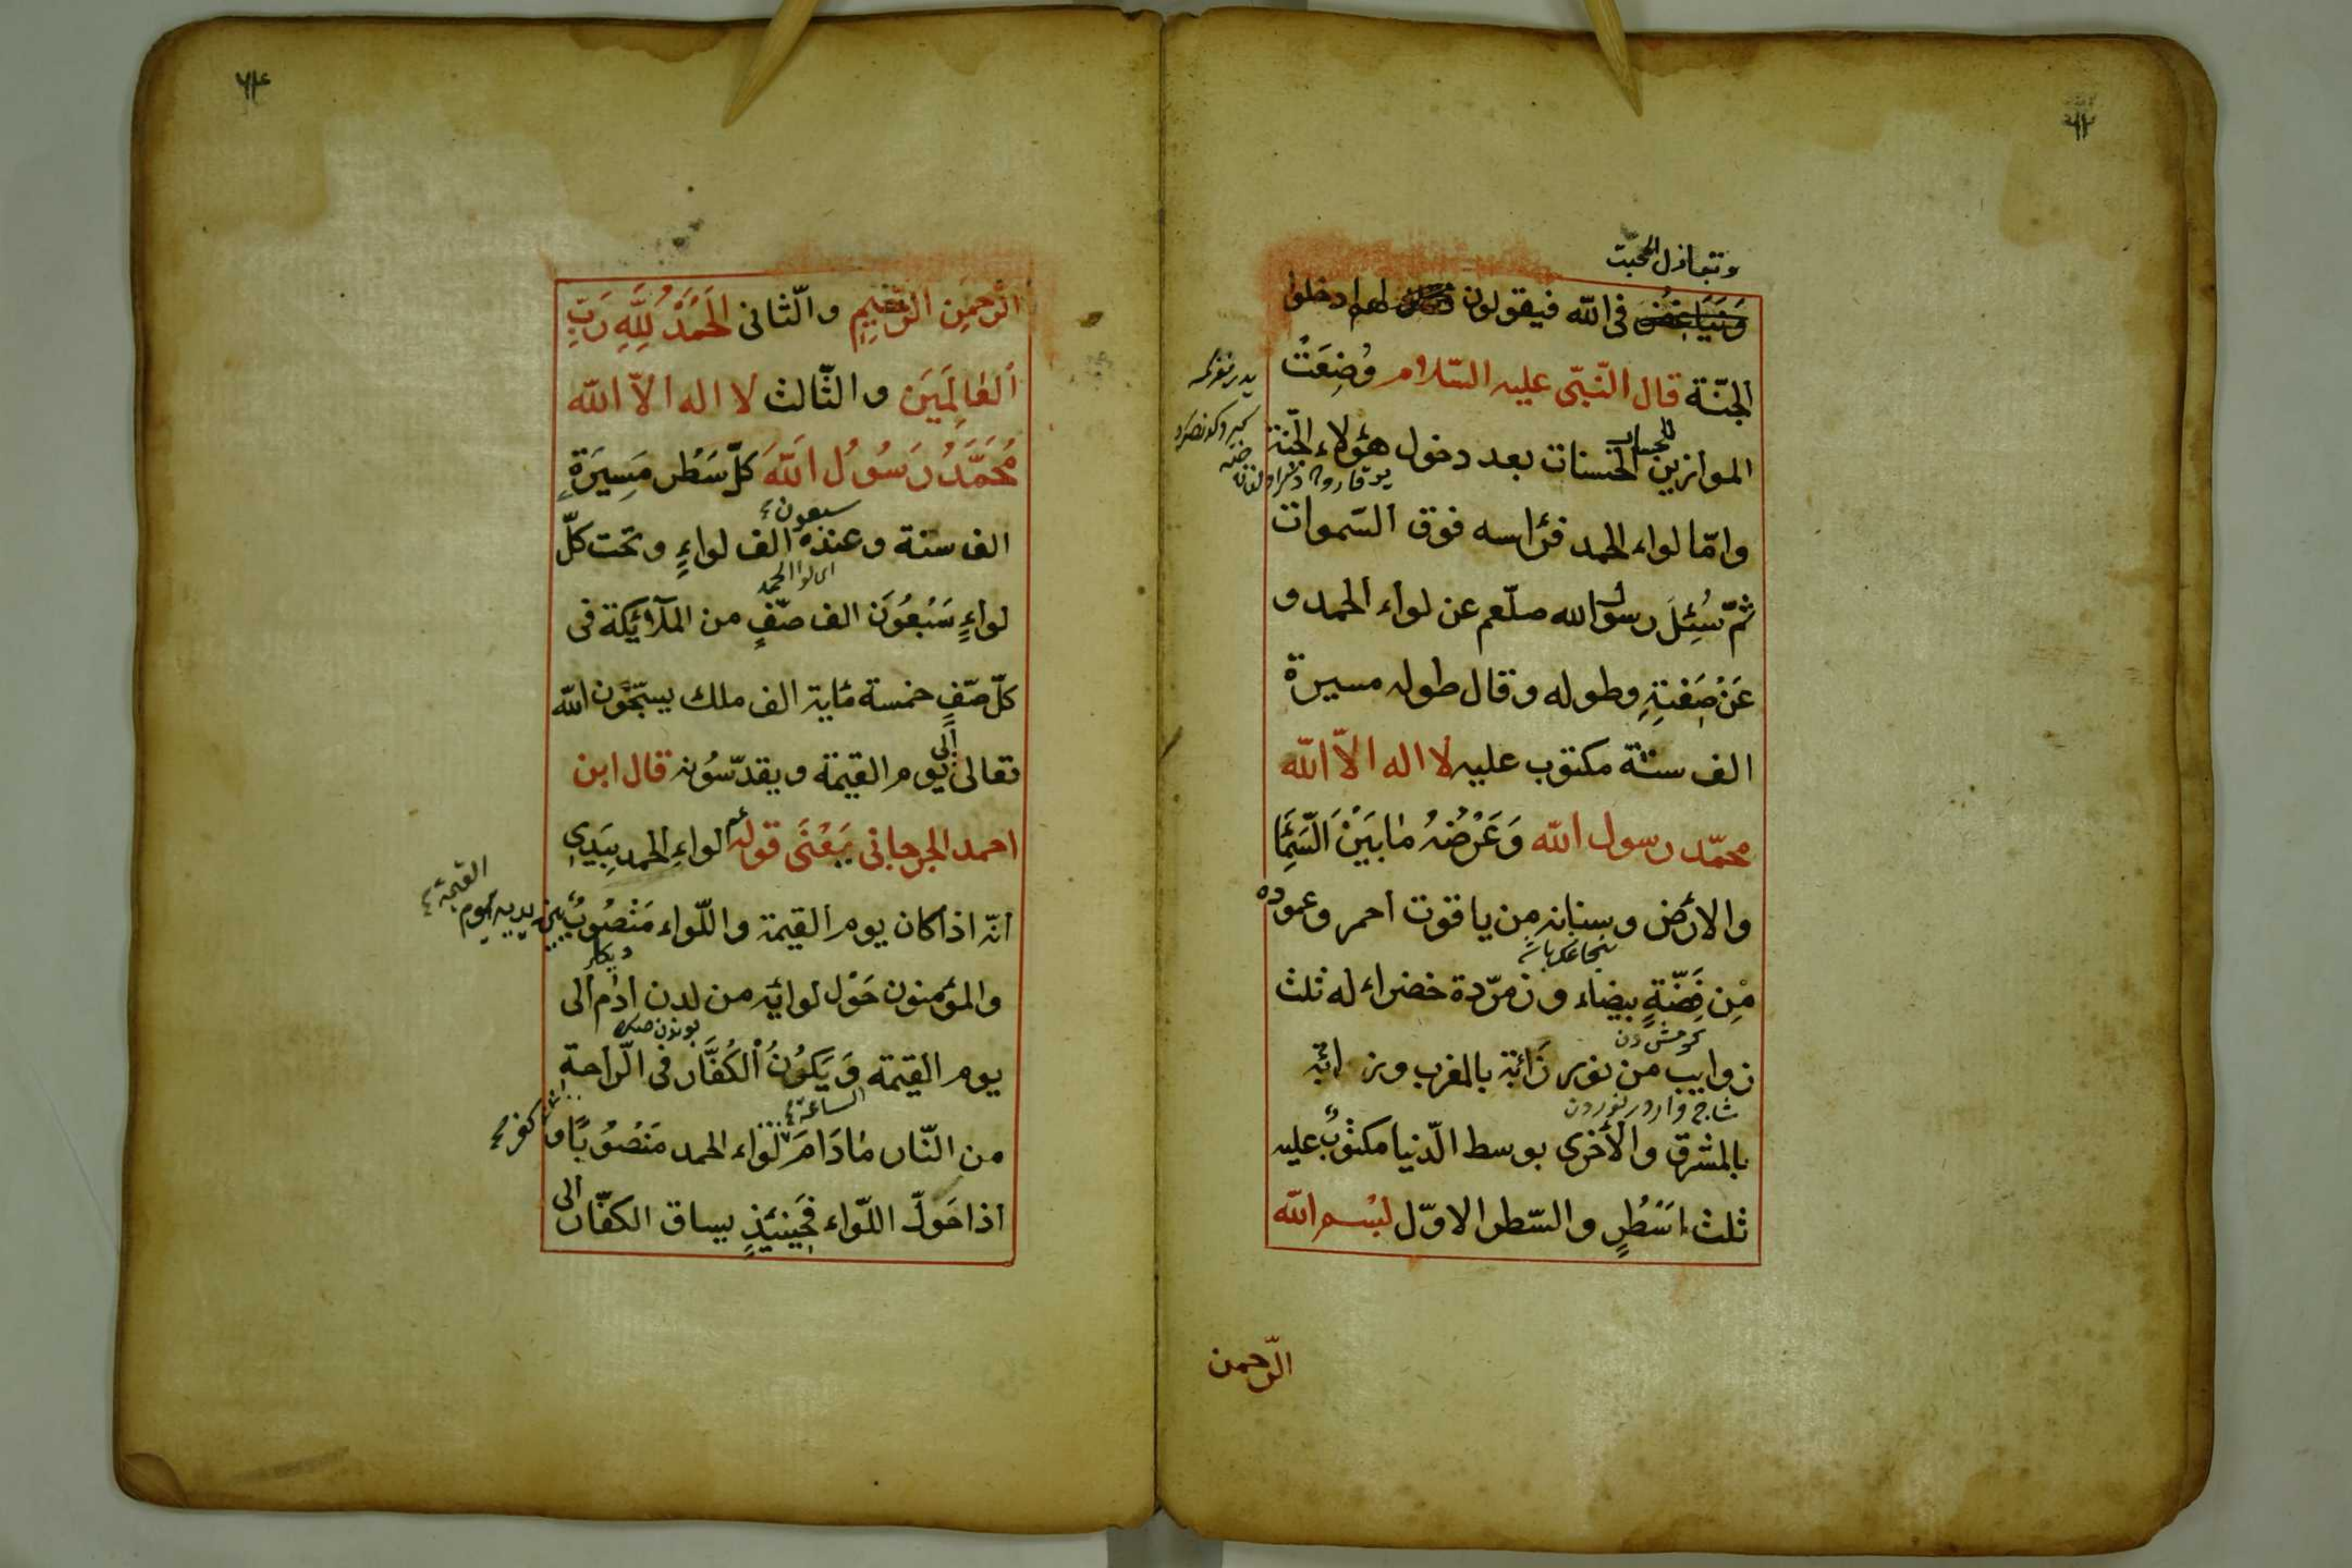 وتباذل المحبت
فى الله فيقولون لهم ادخلوا
الجنّة قال النّبىّ عليه السّلام وُضِعَتْ
الموازين للحساب بعد دخول هؤلاء الجنة
وامّا لواء الحمد فرأسه فوق السموات
ثمّ سُئِلَ رسول الله صلّعم عن لواء الحمد و
عَنْ صِفَتِهِ وطوله وقال طوله مسيرة
الف سنة مكتوب عليه لا اله الاّ الله
محمّد رسول الله وَعَرْضُهُ مٰا بَيْنَ السَّمَٓاءِ
والارض وسنانه من ياقوت احمر وعموده
مِن فِضّةٍ بيضاء وزمرّدة خضراء له ثلث
زوايب من نور زائبة بالمغرب وزائبة
بالمشرق والأخرى بوسط الدّنيا مكتوبٌ عليه
ثلث اَسْطُرٍ والسّطر الاوّل بسم الله
الرّحمن
٦٤
الرّحمن الرّحيم والثّانى اَلْحَمْدُ لِلّٰهِ رَبِّ
اَلْعٰالَمِيَن والثّالث لا اله الاّ الله
مُحَمَّدُ رَسُولُ اللهَ كلّ سَطْر مَسِيرَةِ
سبعون
الف سنة وعنده الف لواءٍ وتحت كلّ
اى لواء الحمد
لواءٍ سَبْعُوَن الف صّفٍ من الملآئكة فى
كلّ صّفٍ خمسة مٔاية الف ملك يسبّحون الله
تعالى الى يوم القيمة ويقدّسُونه قال ابن
احمد الجرجانى يَعْنَى قوله عم لواءِ الحمد بِيَدِى
انّه اذا كان يوم القيمة واللّواء مَنْصُوبٌ بين يديه يوم القيمة
والمؤمنون حَوْل لوائه من لدن ادٰم الى
يوم القيمة وَيَكُونُ اْلكُفَّار فى الّراحةِ
الساعة
من النّار مٰادَامَ لوَاء الحمد مَنْصُوبًا و
اذا حَوّلَ اللّواء فَحِينَئِذٍ يساق الكفّار الى